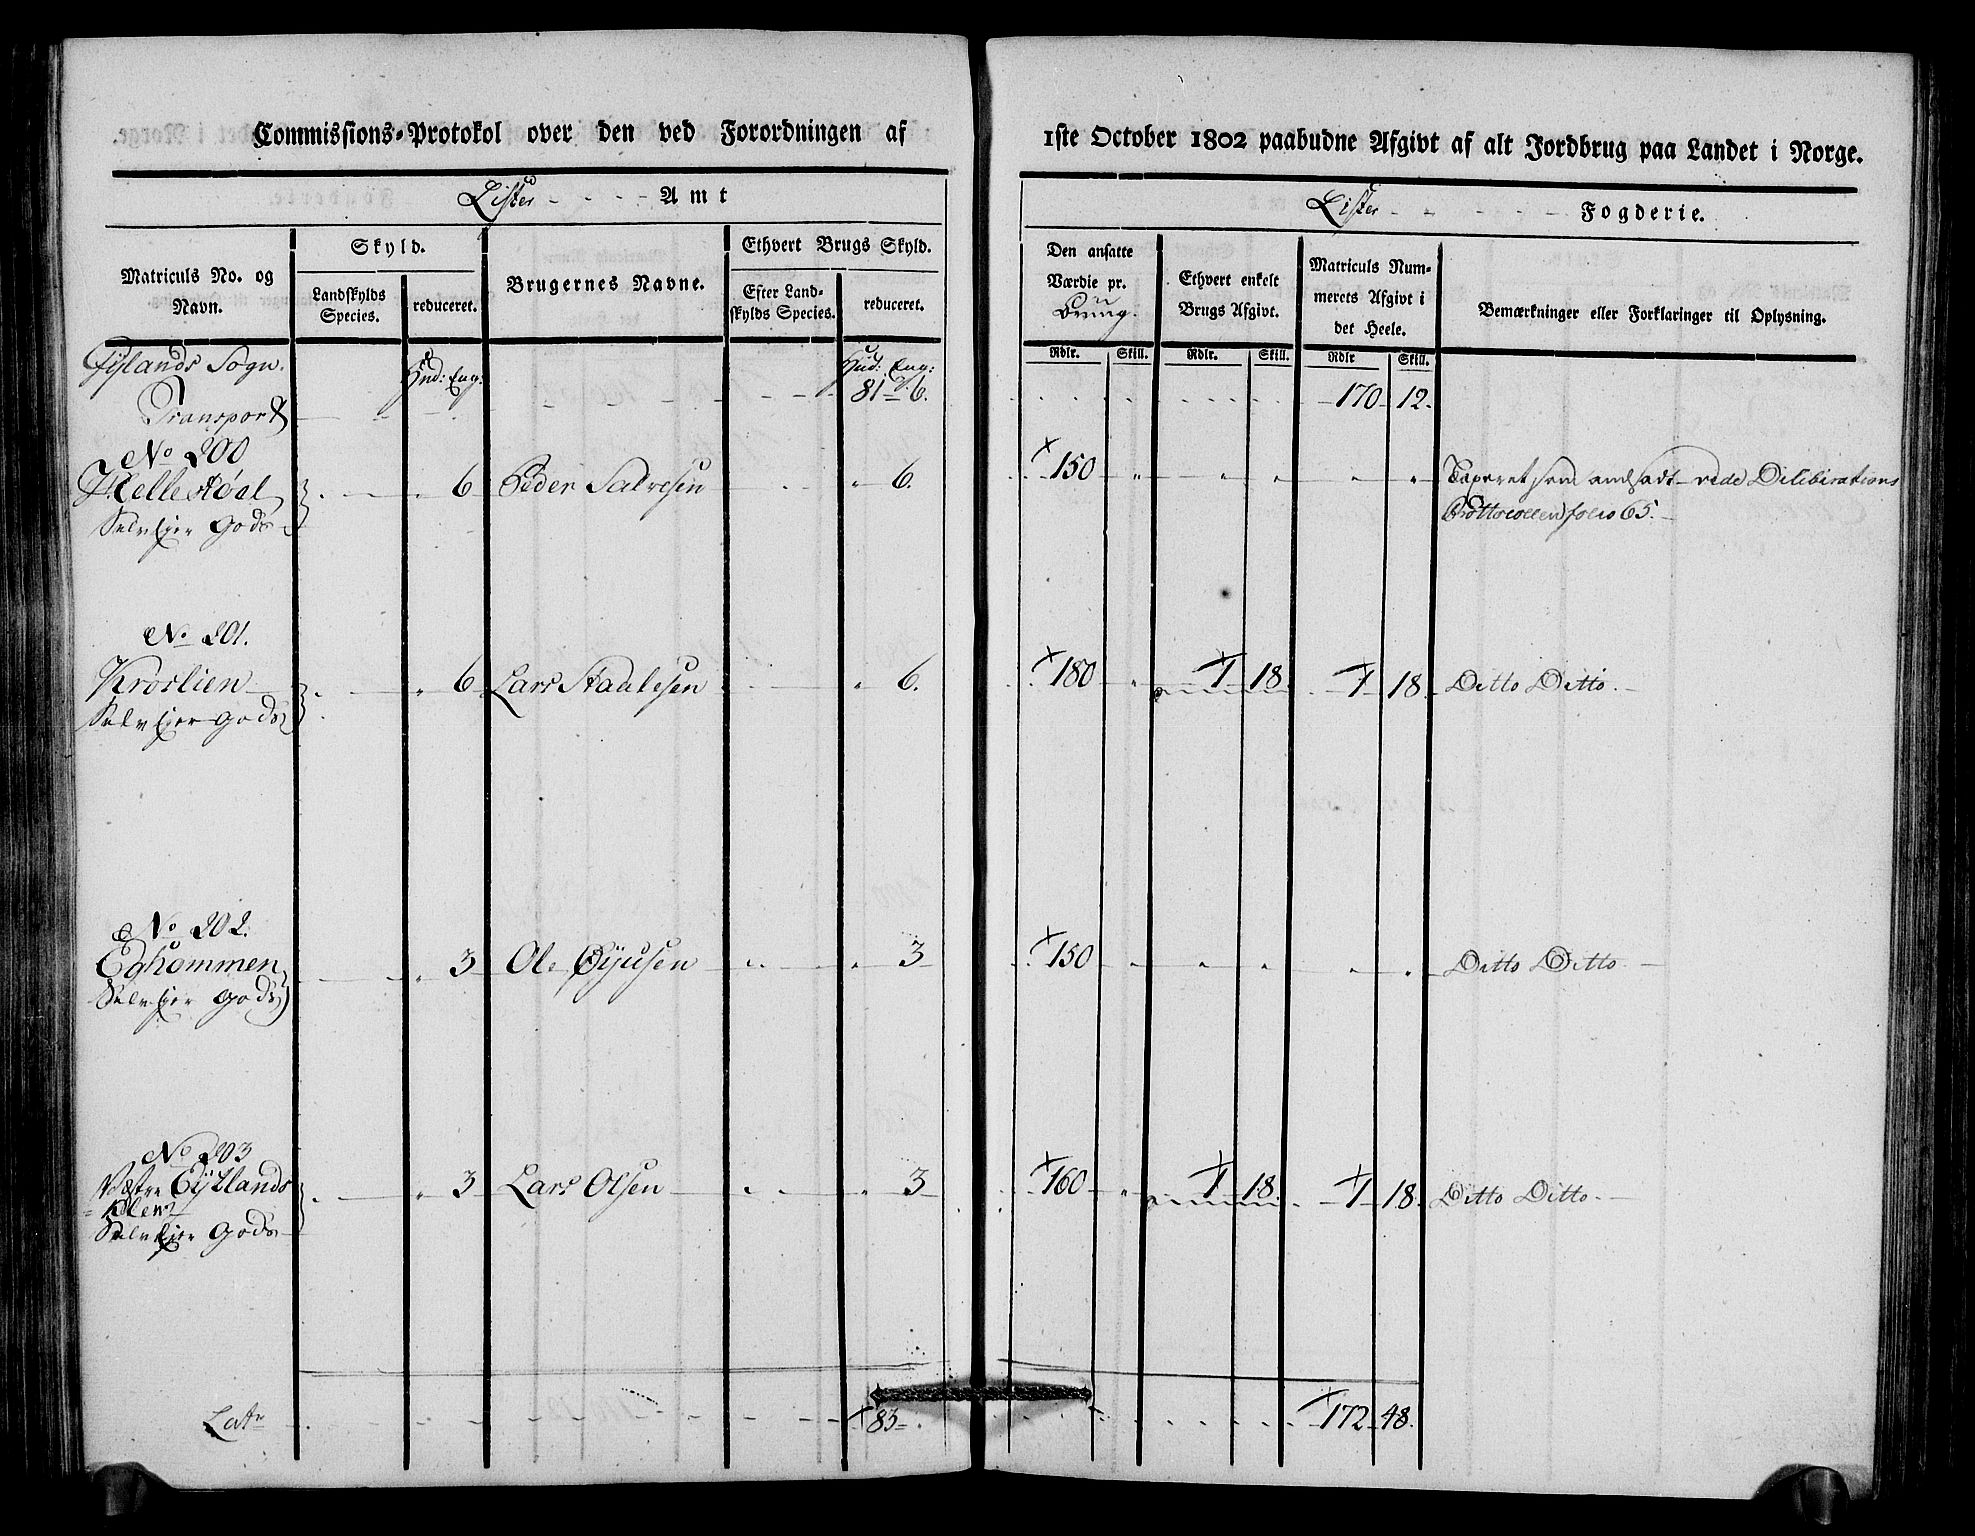 Commissions-Protokol over den ved Forordningen af 1ste October 1802 paabudne Afgivt af alt Jordbrug paa Landet i Norge.
Lister Amt
Lister Fogderie.
Matriculs No. og Navn.
Skyld.
Landskylds Species.
reduceret.
Brugernes Navne.
Ethvert Brugs Skyld.
Efter Landskylds Species.
reduceret.
Den ansatte Værdie pr. Brug.
Ethvert enkelt Brugs Afgivt.
Matriculs Nummerets Afgivt i det Heele.
Bemærkninger eller Forklaringer til Oplysning.
Rdlr. Skill. Rdlr. Skill. Rdlr Skill.
Hud: Eng: Hud: Eng:
Fjylands Sogn.
Transport 81 6. 170 12.
No 200
Hellestøel 6 Peder Salvesen 6. 150 Taxeret som andsadt vede Diliberations
Selv Ejer Gods Prottocollen folio 65.
No 201.
Kroslien 6 Lars Staalesen 6. 180 1 18 1 18 Ditto Ditto.
Selv Ejer Gods
No 202.
Eghommen 3 Ole 3 150 Ditto Ditto
Selv Ejer Gods
No 203
Vestre 3 Lars Olsen 3 160 1 18. 1 18. Ditto Ditto.
Selv Ejer Gods
Lat 83 172 48.